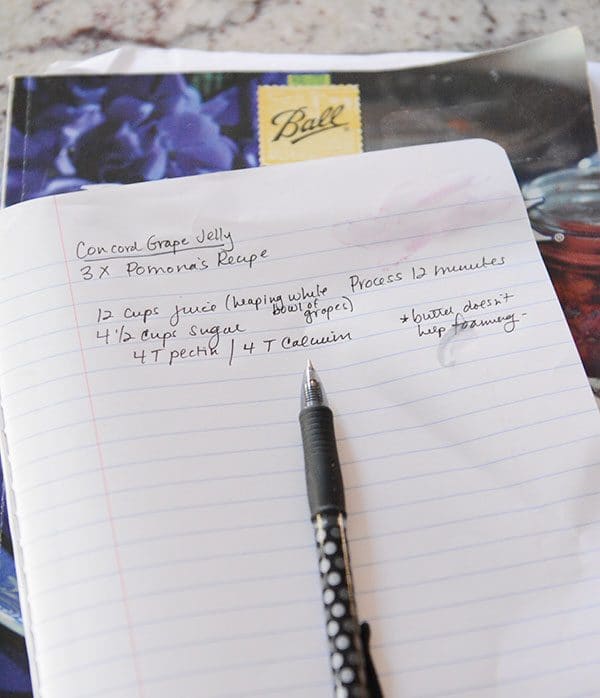 Ball
Concord Grape Jelly
3 X Pomona's Recipe
Process 12 minutes
12 cups juice (heaping white
bowl of
grapes)
4 1/2 cups sugar
4 T pectin / 4 T Calcium
* butter doesn't
help foaming-